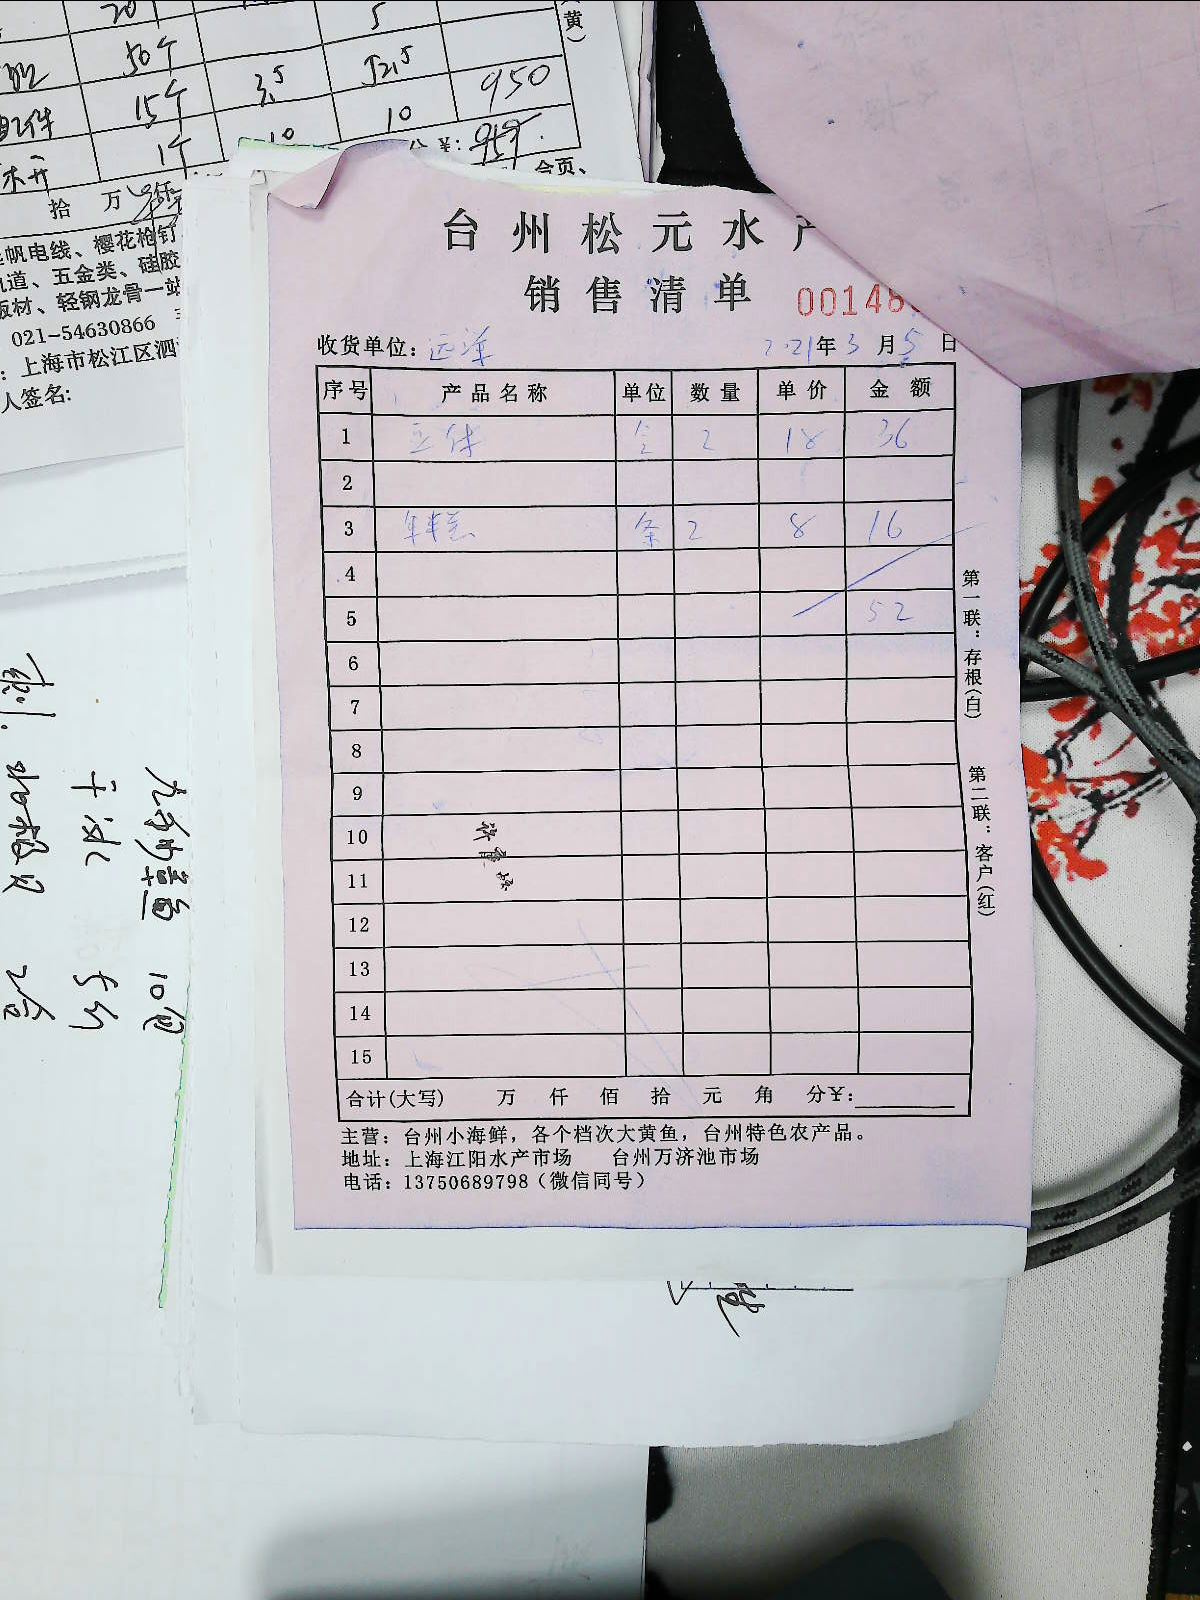 20
5
黄）
50个
15个
3.5
52.5
950
配件
1个
10
10
¥:
合页、
拾 万
帆电线、樱花枪钉
轨道、五金类、硅胶
板材、轻钢龙骨一站
021-54630866
：上海市松江区泗
人签名:
台州松元水产
销售清单
00148
收货单位：远洋 2021年3月5日
序号 产品名称 单位 数量 单价 金额
1 2 18 36
2
3 年糕 条 2 8 16
4
5 52
6
7
8
9
10
11
12
13
14
15
合计(大写) 万 仟 佰 拾 元 角 分¥:
主营：台州小海鲜，各个档次大黄鱼，台州特色农产品。
地址：上海江阳水产市场 台州万济池市场
电话：13750689798（微信同号）
第一联：存根(白)
第二联：客户(红)